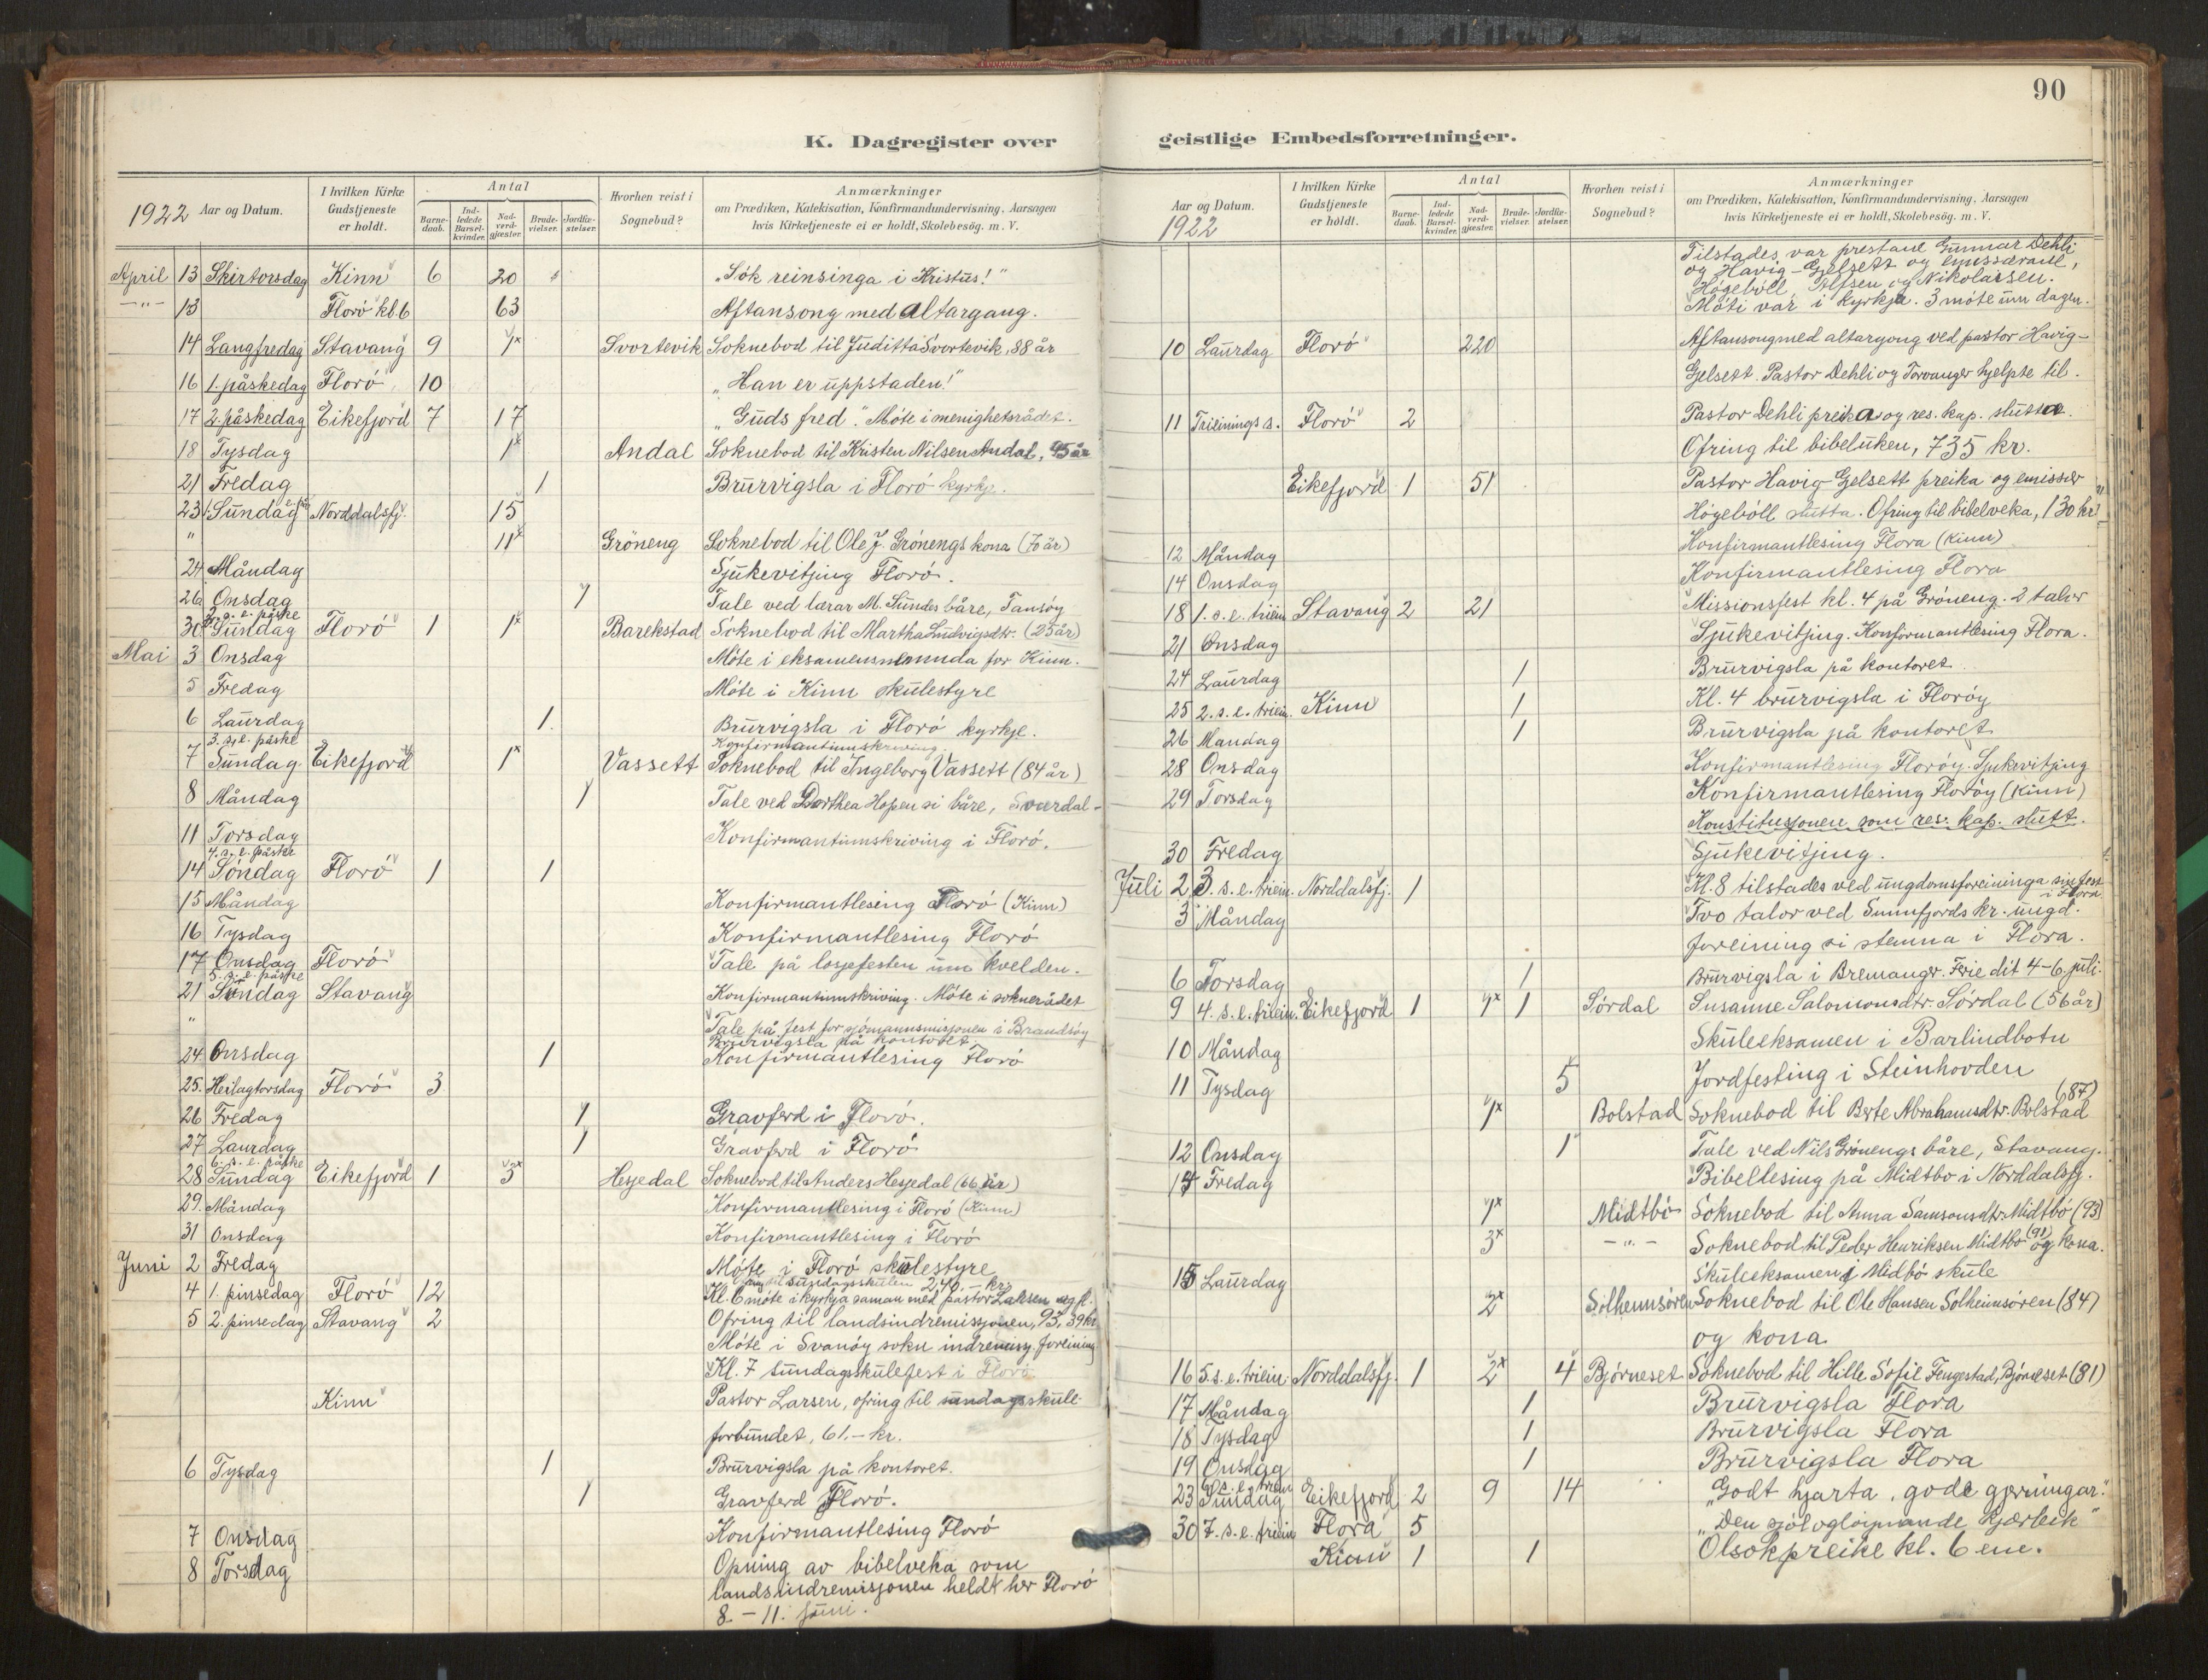 90
K. Dagregister over
1922 Aar og Datum. I hvilken Kirke Gudstjeneste er holdt. Antal Barne-daab. Ind-ledede Barsel-kvinder. Nad-verd-gjæster. Brude-vielser. Jordfæ-stelser. Hvorhen reist i Sognebud? Anmærkninger om Prædiken, Katekisation, Konfirmandundervisning, Aarsagen hvis Kirketjeneste ei er holdt, Skolebesög. m. V.
April 13 Skirtorsdag Kinn 6 20 „Sök reinsinga i Kristus!"
-"- 13 Florö kl. 6 63 Aftansong med altargang.
14 Langfredag Stavang 9 1x Svortevik Soknebod til Juditta Svortevik, 88 år
16 1. påskedag Florö 10 „Han er uppstaden!"
17 2. påskedag Eikefjord 7 17 „Guds fred". Möte i menighetsrådet.
18 Tysdag 1x Andal Soknebod til Kristen Nilsen Andal, 95 år
21 Fredag 1 Brurvigsla i Florö kyrkje.
23 1. Sundag e. på. Norddalsfj. 15
" 11x Gröneng Soknebod til Ole J. Grönengs kona (70 år)
24 Måndag Sjukevitjing Florö.
26 Onsdag 1 Tale ved lærar M. Sundes båre, Tansöy
30 2. s. e. påske Sundag Florö 1 1x Barekstad Soknebod til Martha Ludvigsdtr. (25 år)
Mai 3 Onsdag Möte i eksamensnemnda for Kinn.
5 Fredag Möte i Kinn skulestyre
6 Laurdag 1 Brurvigsla i Florö kyrkje.
Konfirmantinnskriving.
7 3. s. e. påske Sundag Eikefjord 1x Vassett Soknebod til Ingeborg Vassett (84 år)
8 Måndag 1 Tale ved Dorthea Hopen si båre,
11 Torsdag Konfirmantinnskriving i Florö.
14 4. s. e. påske Söndag Florö 1 1
15 Måndag Konfirmantlesing Florö (Kinn)
16 Tysdag Konfirmantlesing Florö
17 Onsdag Florö Tale på losjefesten um kvelden.
21 5. s. e. påske Sundag Stavang Konfirmantinnskriving. Möte i soknerådet
" Tale på fest for sjömannsmisjonen i Brandsöy
Brurvigsla på kontoret.
24 Onsdag 1 Konfirmantlesing Florö
25. Heilagtorsdag Florö 3
26 Fredag 1 Gravferd i Florö.
27 Laurdag 1 Gravferd i Florö
28 6. s. e. påske Sundag Eikefjord 1 3x Hesjedal Soknebod til Anders Hesjedal (66 år)
29. Måndag Konfirmantlesing i Florö (Kinn)
31 Onsdag Konfirmantlesing i Florö
Juni 2 Fredag Möte i Florö skulestyre
til sundagsskulen 240,- kr.
4 1. pinsedag Florö 12 Kl. 6 möte i kyrkja saman med pastor Larsen og fl.
5 2. pinsedag Stavang 2 Ofring til landsindremisjonen, 93,39 kr
Möte i Svanöy sokn indremisj. foreining
Kl. 7 sundagsskulefest i Florö
Kinn Pastor Larsen, ofring til sundagsskule-
forbundet, 61.- kr.
6 Tysdag 1 Brurvigsla på kontoret.
1 Gravferd Florö.
7 Onsdag Konfirmantlesing Florö
8 Torsdag Opning av bibelveka som
landsindremisjonen heldt her Florö
8. - 11. juni.
geistlige Embedsforretninger.
Aar og Datum. 1922 I hvilken Kirke Gudstjeneste er holdt. Antal Barne-daab. Ind-ledede Barsel-kvinder. Nad-verd-gjæster. Brude-vielser. Jordfæ-stelser. Hvorhen reist i Sognebud? Anmærkninger om Prædiken, Katekisation, Konfirmandundervisning, Aarsagen hvis Kirketjeneste ei er holdt, Skolebesög. m. V.
Tilstades var prestane Gunnar Dehli
og Havig-Gjelsett og emissærane,
Högeböll, Alfsen og Nikolaisen.
Möti var i kyrkja. 3 möte um dagen.
10 Laurdag Florö 220 Aftansong med altargong ved pastor Havig-
Gjelsett. Pastor Dehli og Torvanger hjelpte til.
11 Trieinings s. Florö 2 Pastor Dehli preika og res. kap. slutta.
Ofring til bibeluken, 735 kr.
Eikefjord 1 51 Pastor Havig-Gjelsett preika og emissær
Högeböll slutta. Ofring til bibelveka, 130 kr.
12 Måndag Konfirmantlesing Flora (Kinn)
14 Onsdag Konfirmantlesing Flora
18 1. s. e. triein. Stavang 2 21 Missionsfest kl. 4 på Gröneng. 2 talor
21 Onsdag Sjukevitjing. Konfirmantlesing Flora.
24 Laurdag 1 Brurvigsla på kontoret.
25 2. s. e. triein. Kinn 1 Kl. 4 brurvigsla i Floröy
26 Måndag 1 Brurvigsla på kontoret
28 Onsdag Konfirmantlesing Floröy. Sjukevitjing
29 Torsdag Konfirmantlesing Floröy (Kinn)
Konstitusjonen som res. kap. slutt.
30 Fredag Sjukevitjing.
Juli 2 3. s. e. triein. Norddalsfj. 1 Kl. 8 tilstades ved ungdomsforeininga sin fest i Flora
3 Måndag Tvo talor ved Sunnfjords kr. ungd.
foreining si stemna i Flora.
6 Torsdag 1 Brurvigsla i Bremanger. Ferie dit 4-6 juli.
9 4. s. e. triein. Eikefjord 1 1x 1 Sördal Susanne Salomonsdtr. Sördal (56 år)
10 Måndag Skuleeksamen i Barlindbotn
11 Tysdag 5 Jordfesting i Steinhovden
1x Bolstad Soknebod til Berte Abrahamsdtr. Bolstad (87)
12 Onsdag 1 Tale ved Nils Grönengs båre, Stavang.
14 Fredag Bibellesing på Midtbö i Norddalsfj.
1x Midtbö Soknebod til Anna Samsonsdtr. Midtbö (93)
3x -"- Soknebod til Peder Henriksen Midtbö (91) og kona.
15 Laurdag Skuleeksamen i Midtbö skule
2x Solheimsören Soknebod til Ole Hansen Solheimsören (84)
og kona
16 5. s. e. triein. Norddalsfj. 1 2x 4 Björneset Soknebod til Hille Sofie Fengestad, Björneset (81)
17 Måndag 1 Brurvigsla Flora
18 Tysdag 1 Brurvigsla Flora
19 Onsdag 1 Brurvigsla Flora
23 6. s. e. triein Sundag Eikefjord 2 9 14 „Godt hjarta, gode gjerningar."
30 7. s. e. triein Flora 5 „Den sjölvgløymande kjærleik"
Kinn 1 1 Olsokpreike kl. 6 em.